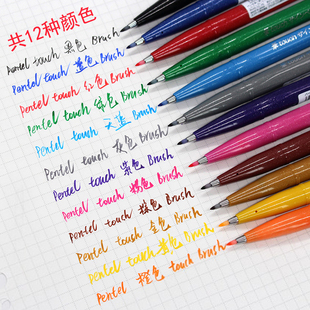 共12种颜色
Pentel touch 黑色 Brush
Pentel touch 蓝色 Brush
Pentel touch 红色 Brush
Pentel touch 绿色 Brush
Pentel touch 天蓝 Brush
Pentel touch 灰色 Brush
Pentel touch 紫色 Brush
Pentel touch 粉色 Brush
Pentel touch 棕色 Brush
Pentel touch 金色 Brush
Pentel touch 黄色 Brush
Pentel 橙色 touch Brush
touch